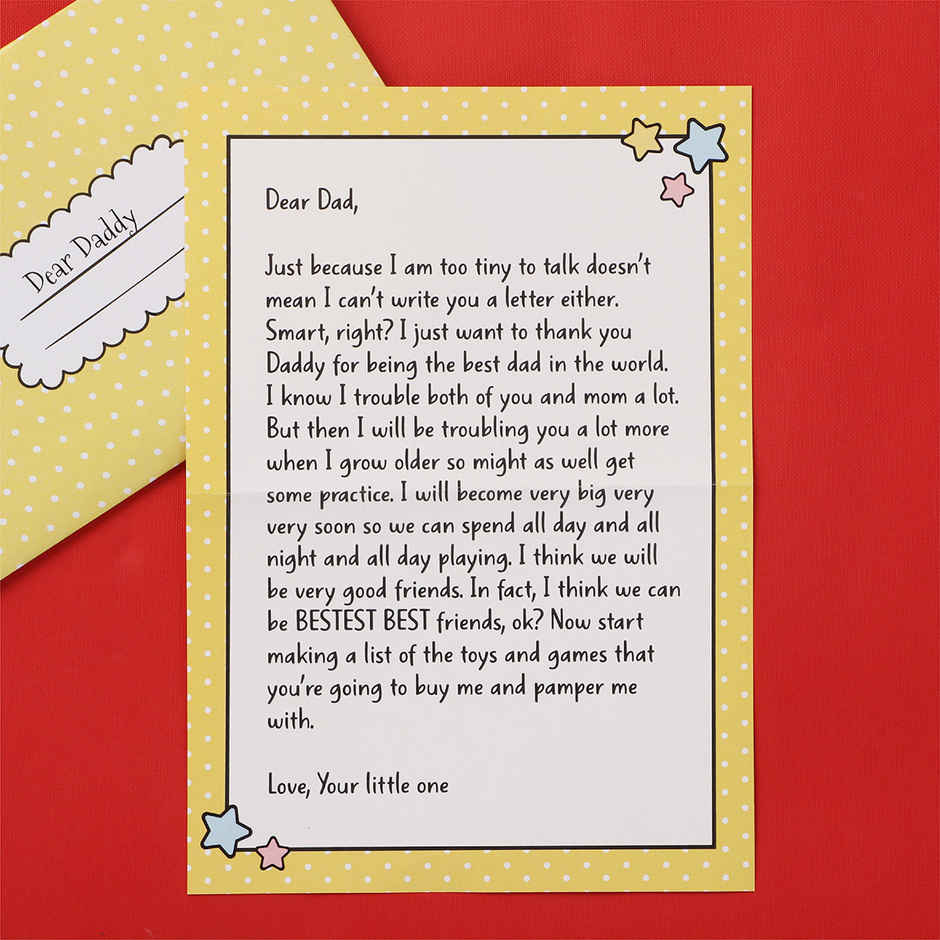 Dear Daddy
Dear Dad,
Just because I am too tiny to talk doesn't
mean I can't write you a letter either.
Smart, right? I just want to thank you
Daddy for being the best dad in the world.
I know I trouble both of you and mom a lot.
But then I will be troubling you a lot more
when I grow older so might as well get
some practice. I will become very big very
very soon so we can spend all day and all
night and all day playing. I think we will
be very good friends. In fact, I think we can
be BESTEST BEST friends, ok? Now start
making a list of the toys and games that
you're going to buy me and pamper me
with.
Love, Your little one